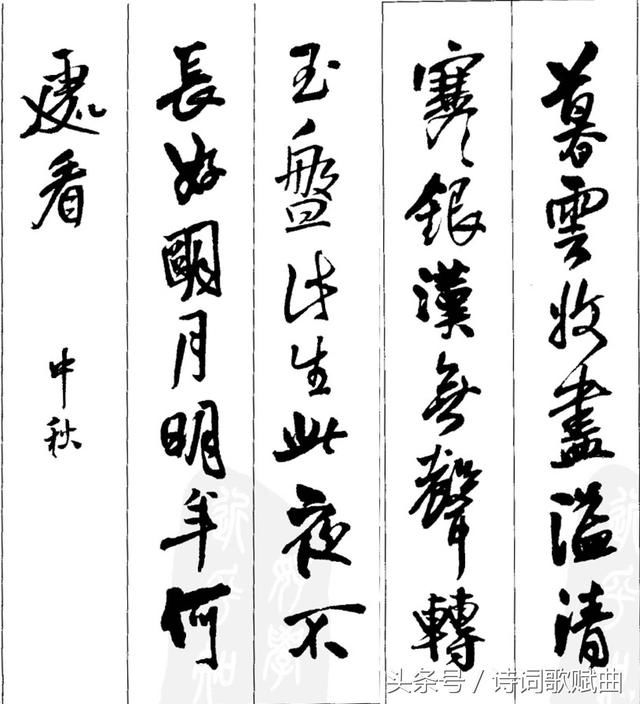 暮雲收盡溢清
寒銀漢無聲轉
玉盤此生此夜不
長好朙月明年何
處看
中秋
头条号 / 诗词歌赋曲